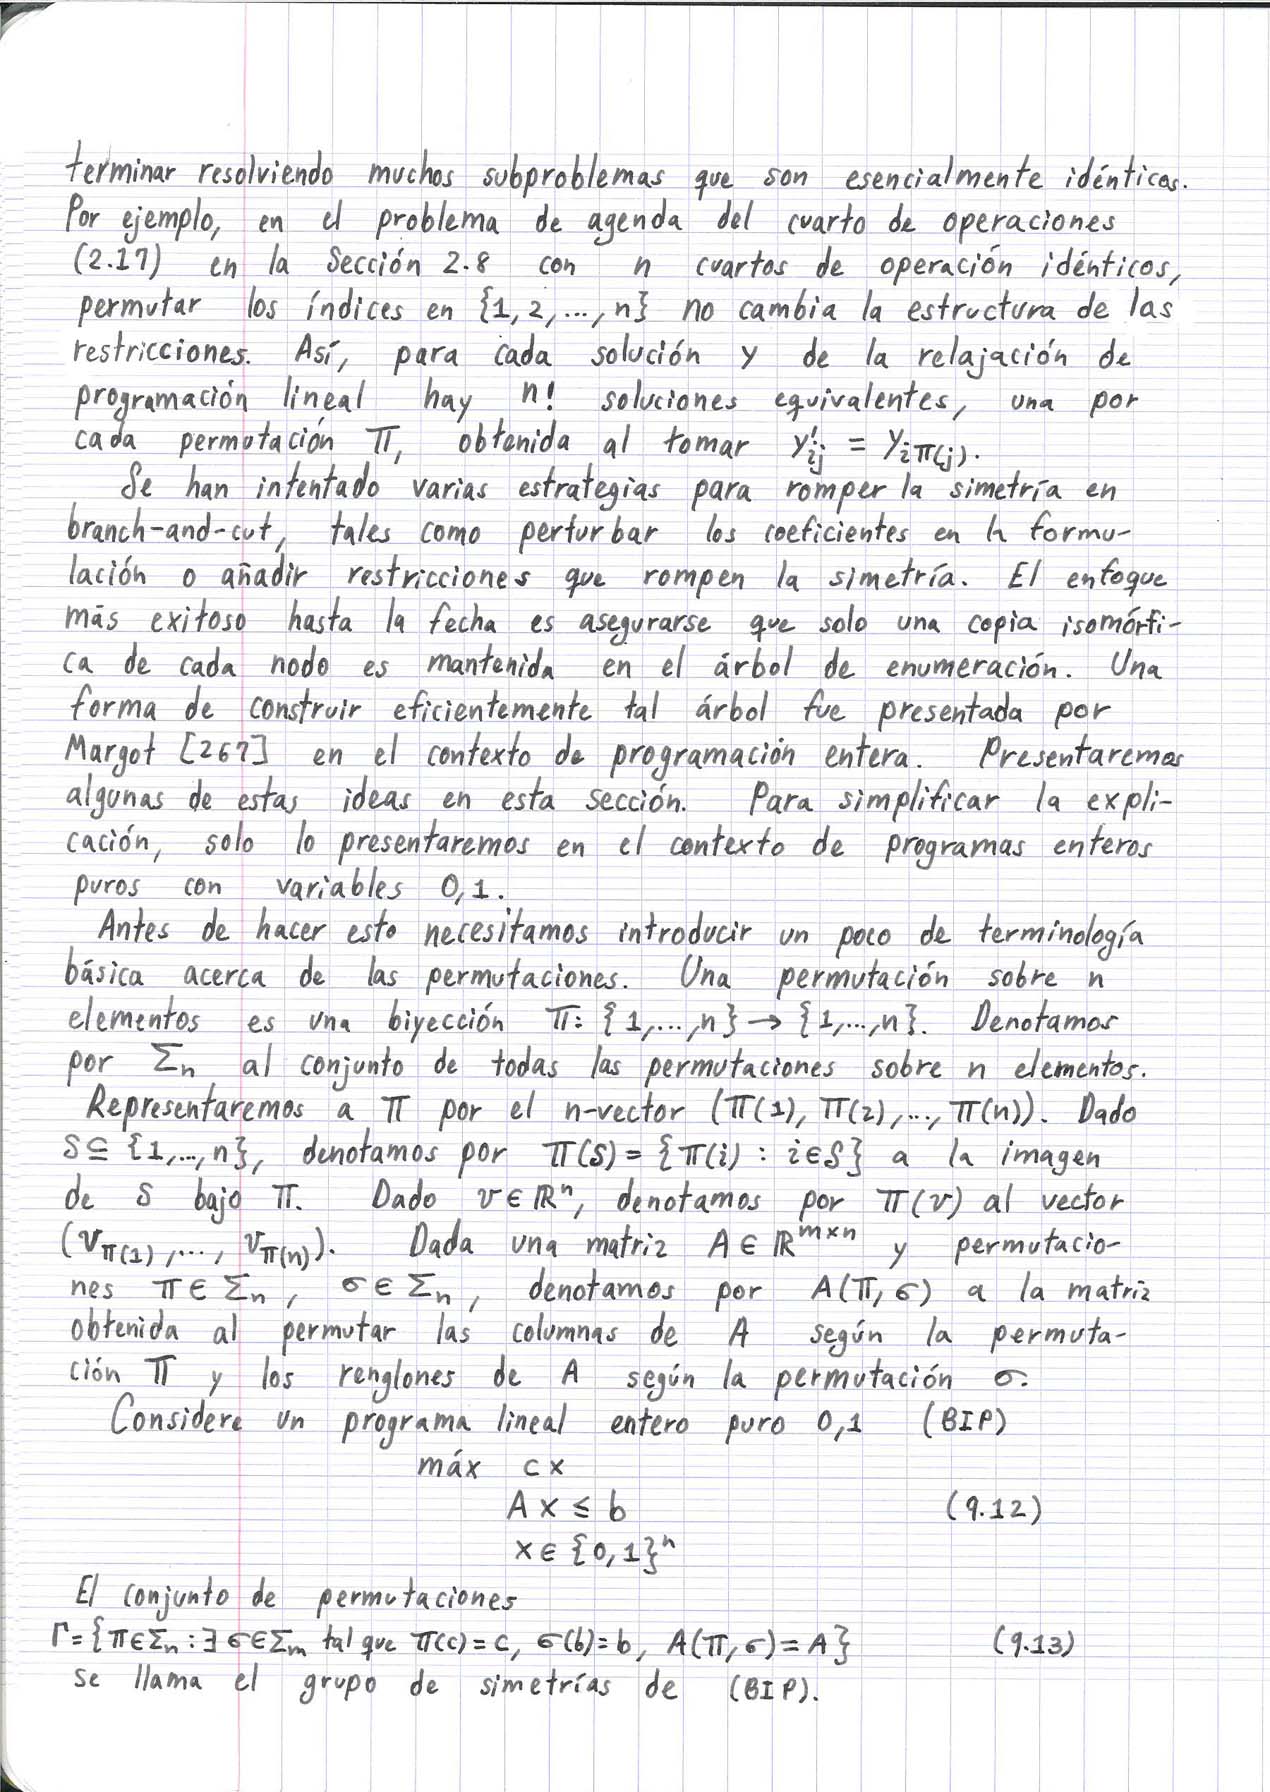 terminar resolviendo muchos subproblemas que son esencialmente idénticos.
Por ejemplo, en el problema de agenda del cuarto de operaciones
(2.17) en la Sección 2.8 con n cuartos de operación idénticos,
permutar los índices en {1, 2, ..., n} no cambia la estructura de las
restricciones. Así, para cada solución y de la relajación de
programación lineal hay n! soluciones equivalentes, una por
cada permutación π, obtenida al tomar y'_{ij} = y_{iπ(j)}.
Se han intentado varias estrategias para romper la simetría en
branch-and-cut, tales como perturbar los coeficientes en la formu-
lación o añadir restricciones que rompen la simetría. El enfoque
más exitoso hasta la fecha es asegurarse que solo una copia isomórfi-
ca de cada nodo es mantenida en el árbol de enumeración. Una
forma de construir eficientemente tal árbol fue presentada por
Margot [267] en el contexto de programación entera. Presentaremos
algunas de estas ideas en esta sección. Para simplificar la expli-
cación, solo lo presentaremos en el contexto de programas enteros
puros con variables 0,1.
Antes de hacer esto necesitamos introducir un poco de terminología
básica acerca de las permutaciones. Una permutación sobre n
elementos es una biyección π: {1,...,n} → {1,...,n}. Denotamos
por Σ_n al conjunto de todas las permutaciones sobre n elementos.
Representaremos a π por el n-vector (π(1), π(2),..., π(n)). Dado
S ⊆ {1,...,n}, denotamos por π(S) = {π(i) : i∈S} a la imagen
de S bajo π. Dado v ∈ ℝ^n, denotamos por π(v) al vector
(v_{π(1)},..., v_{π(n)}). Dada una matriz A ∈ ℝ^{m×n} y permutacio-
nes π ∈ Σ_n, σ ∈ Σ_n, denotamos por A(π, σ) a la matriz
obtenida al permutar las columnas de A según la permuta-
ción π y los renglones de A según la permutación σ.
Considere un programa lineal entero puro 0,1 (BIP)
máx cx
Ax ≤ b (9.12)
x ∈ {0,1}^n
El conjunto de permutaciones
Γ = {π∈Σ_n : ∃ σ∈Σ_m tal que π(c)=c, σ(b)=b, A(π, σ)=A} (9.13)
se llama el grupo de simetrías de (BIP).